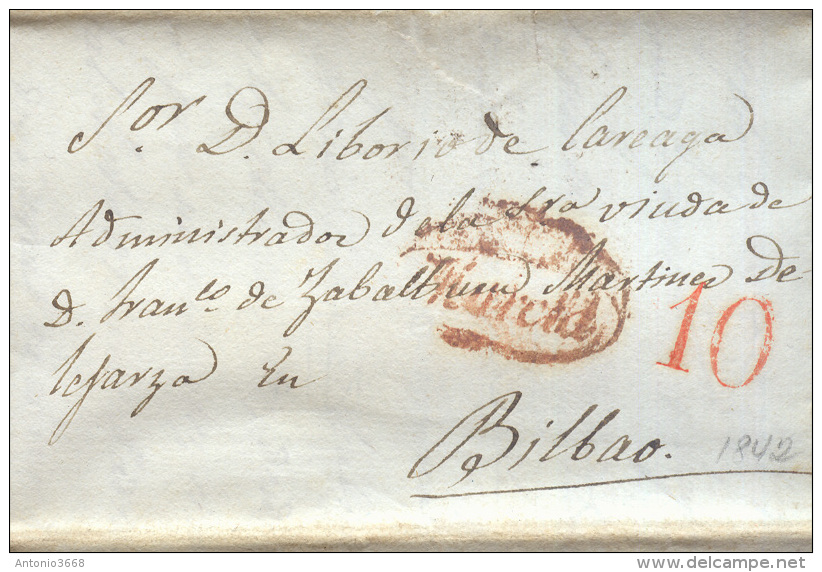 Sor D. Liborio de Careaga
Administrador dela Sra viuda de
D. Franco de Zabalburu Martinez De
lejarza En
Bilbao.
Murcia
10
1842
Antonio3668
www.delcampe.net